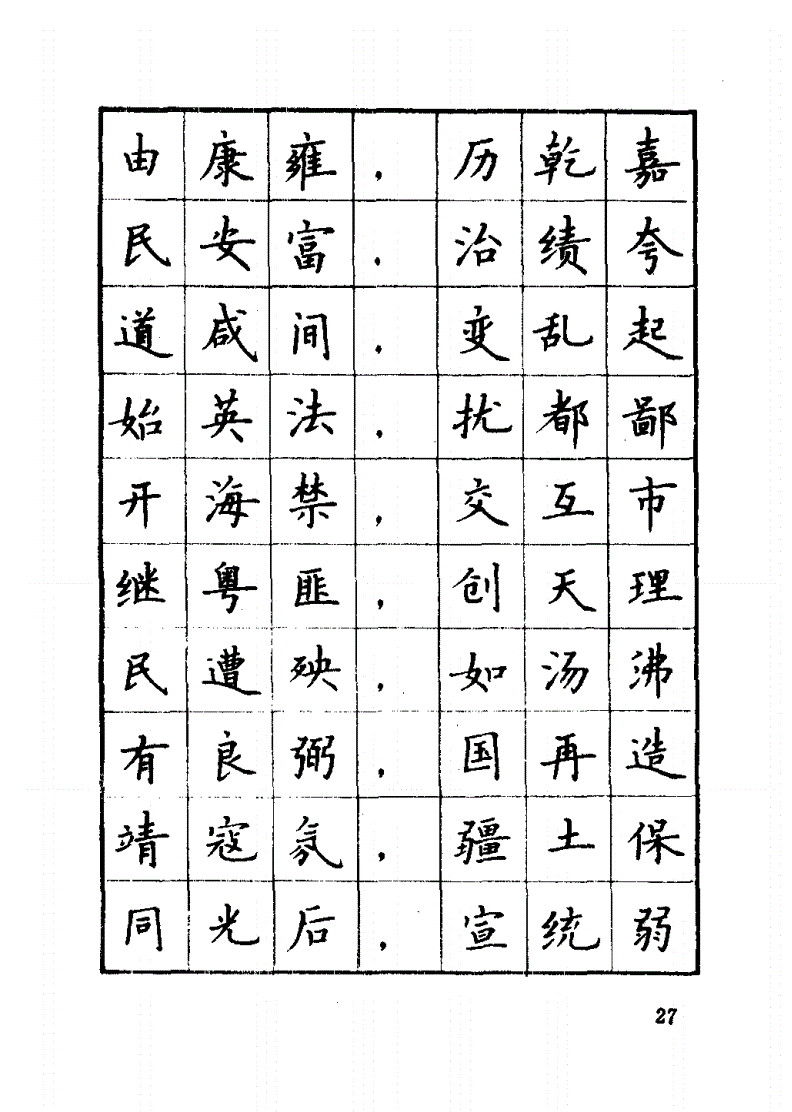 由康雍，历乾嘉
民安富，治绩夸
道咸间，变乱起
始英法，扰都鄙
开海禁，交互市
继粤匪，创天理
民遭殃，如汤沸
有良弼，国再造
靖寇氛，疆土保
同光后，宣统弱
27